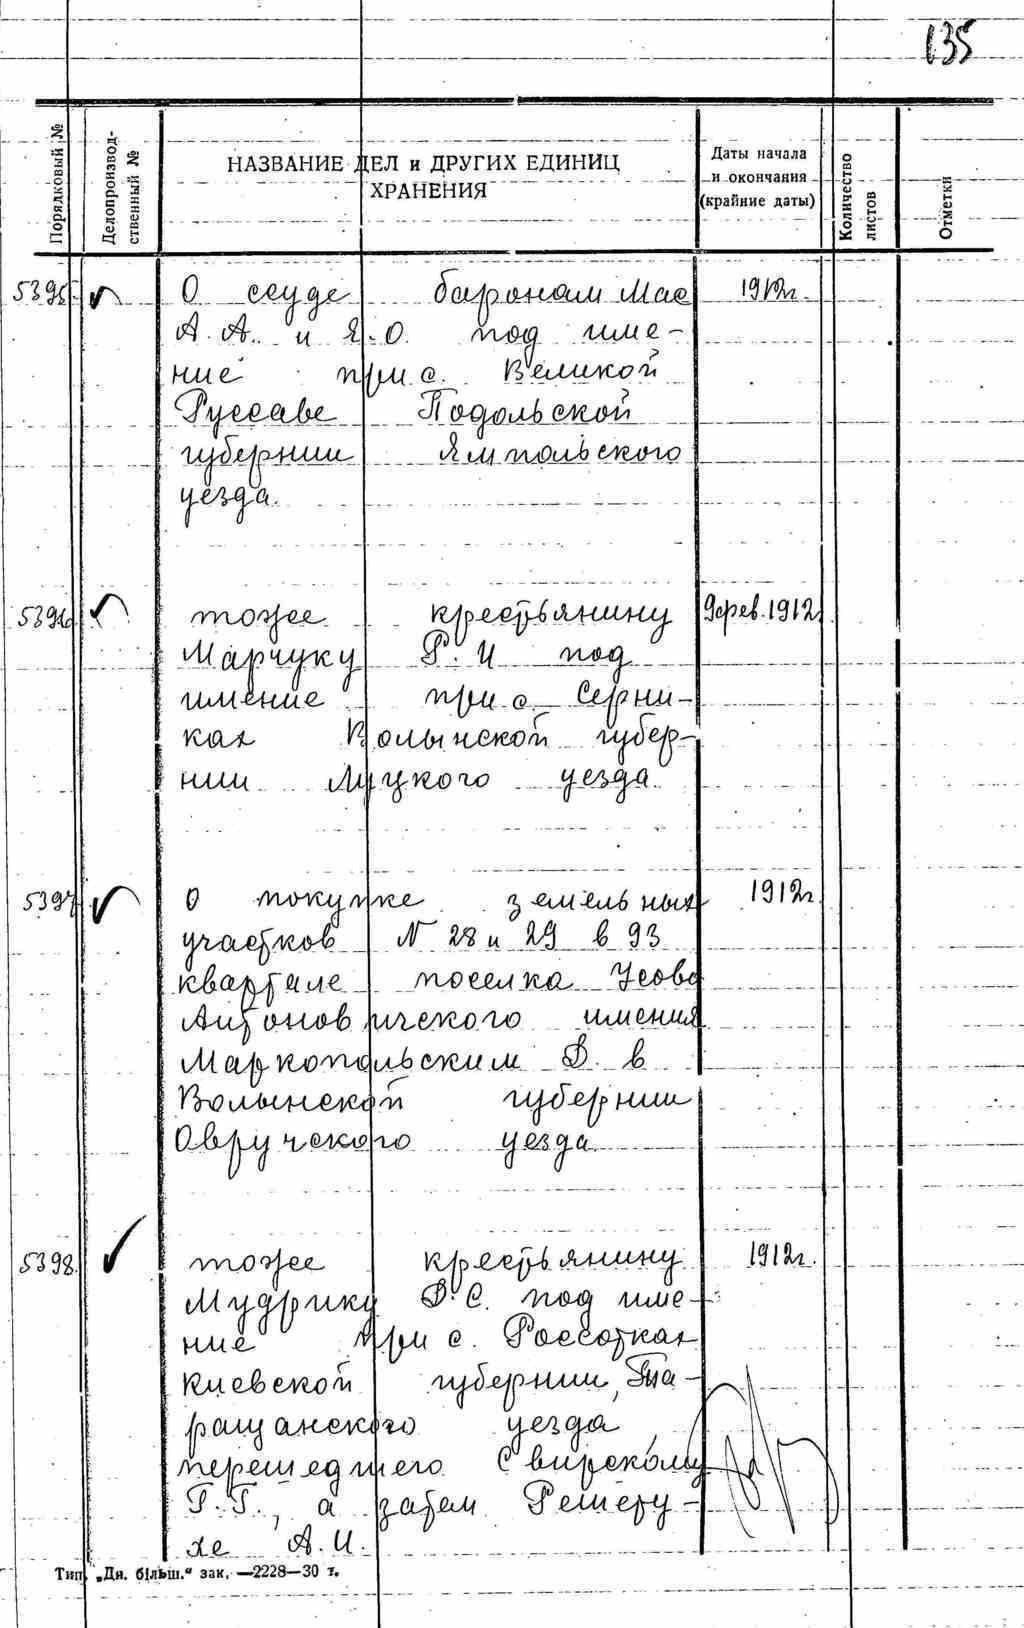 135
Порядковый №
Делопроизвод-
ственный №
НАЗВАНИЕ ДЕЛ и ДРУГИХ ЕДИНИЦ
ХРАНЕНИЯ
Даты начала
и окончания
(крайние даты)
Количество
листов
Отметки
5395 О ссуде баронам Мас 1912г.
А.А. и Я.О. под име-
ние при с. Великой
Руссаве Подольской
губернии Ямпольского
уезда.
5396 тоже крестьянину 9 фев. 1912
Марчуку Р. И под
имение при с. Серни-
ках Волынской губер-
нии Луцкого уезда.
5397 О покупке земельных 1912г
участков N 28 и 29 в 93
квартале поселка Усово
Антоновичского имения
Маркопольским Д. в
Волынской губернии
Овручского уезда.
5398. тоже крестьянину 1912г.
Мудрику Ф.С. под име-
ние при с. Россотках
Киевской губернии, Та-
ращанского уезда,
перешедшего Свирскому
Г.Г., а затем Решету-
хе А.И.
Тип. „Дн. більш.“ зак. —2228—30 т.